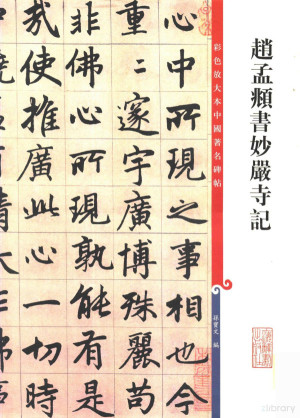 趙孟頫書妙嚴寺記
彩色放大本中國著名碑帖
孫寶文 編
心中所現之事相也今
重二邃宇廣博殊麗苟
非佛心所現孰能有是
哉使推廣此心一切時